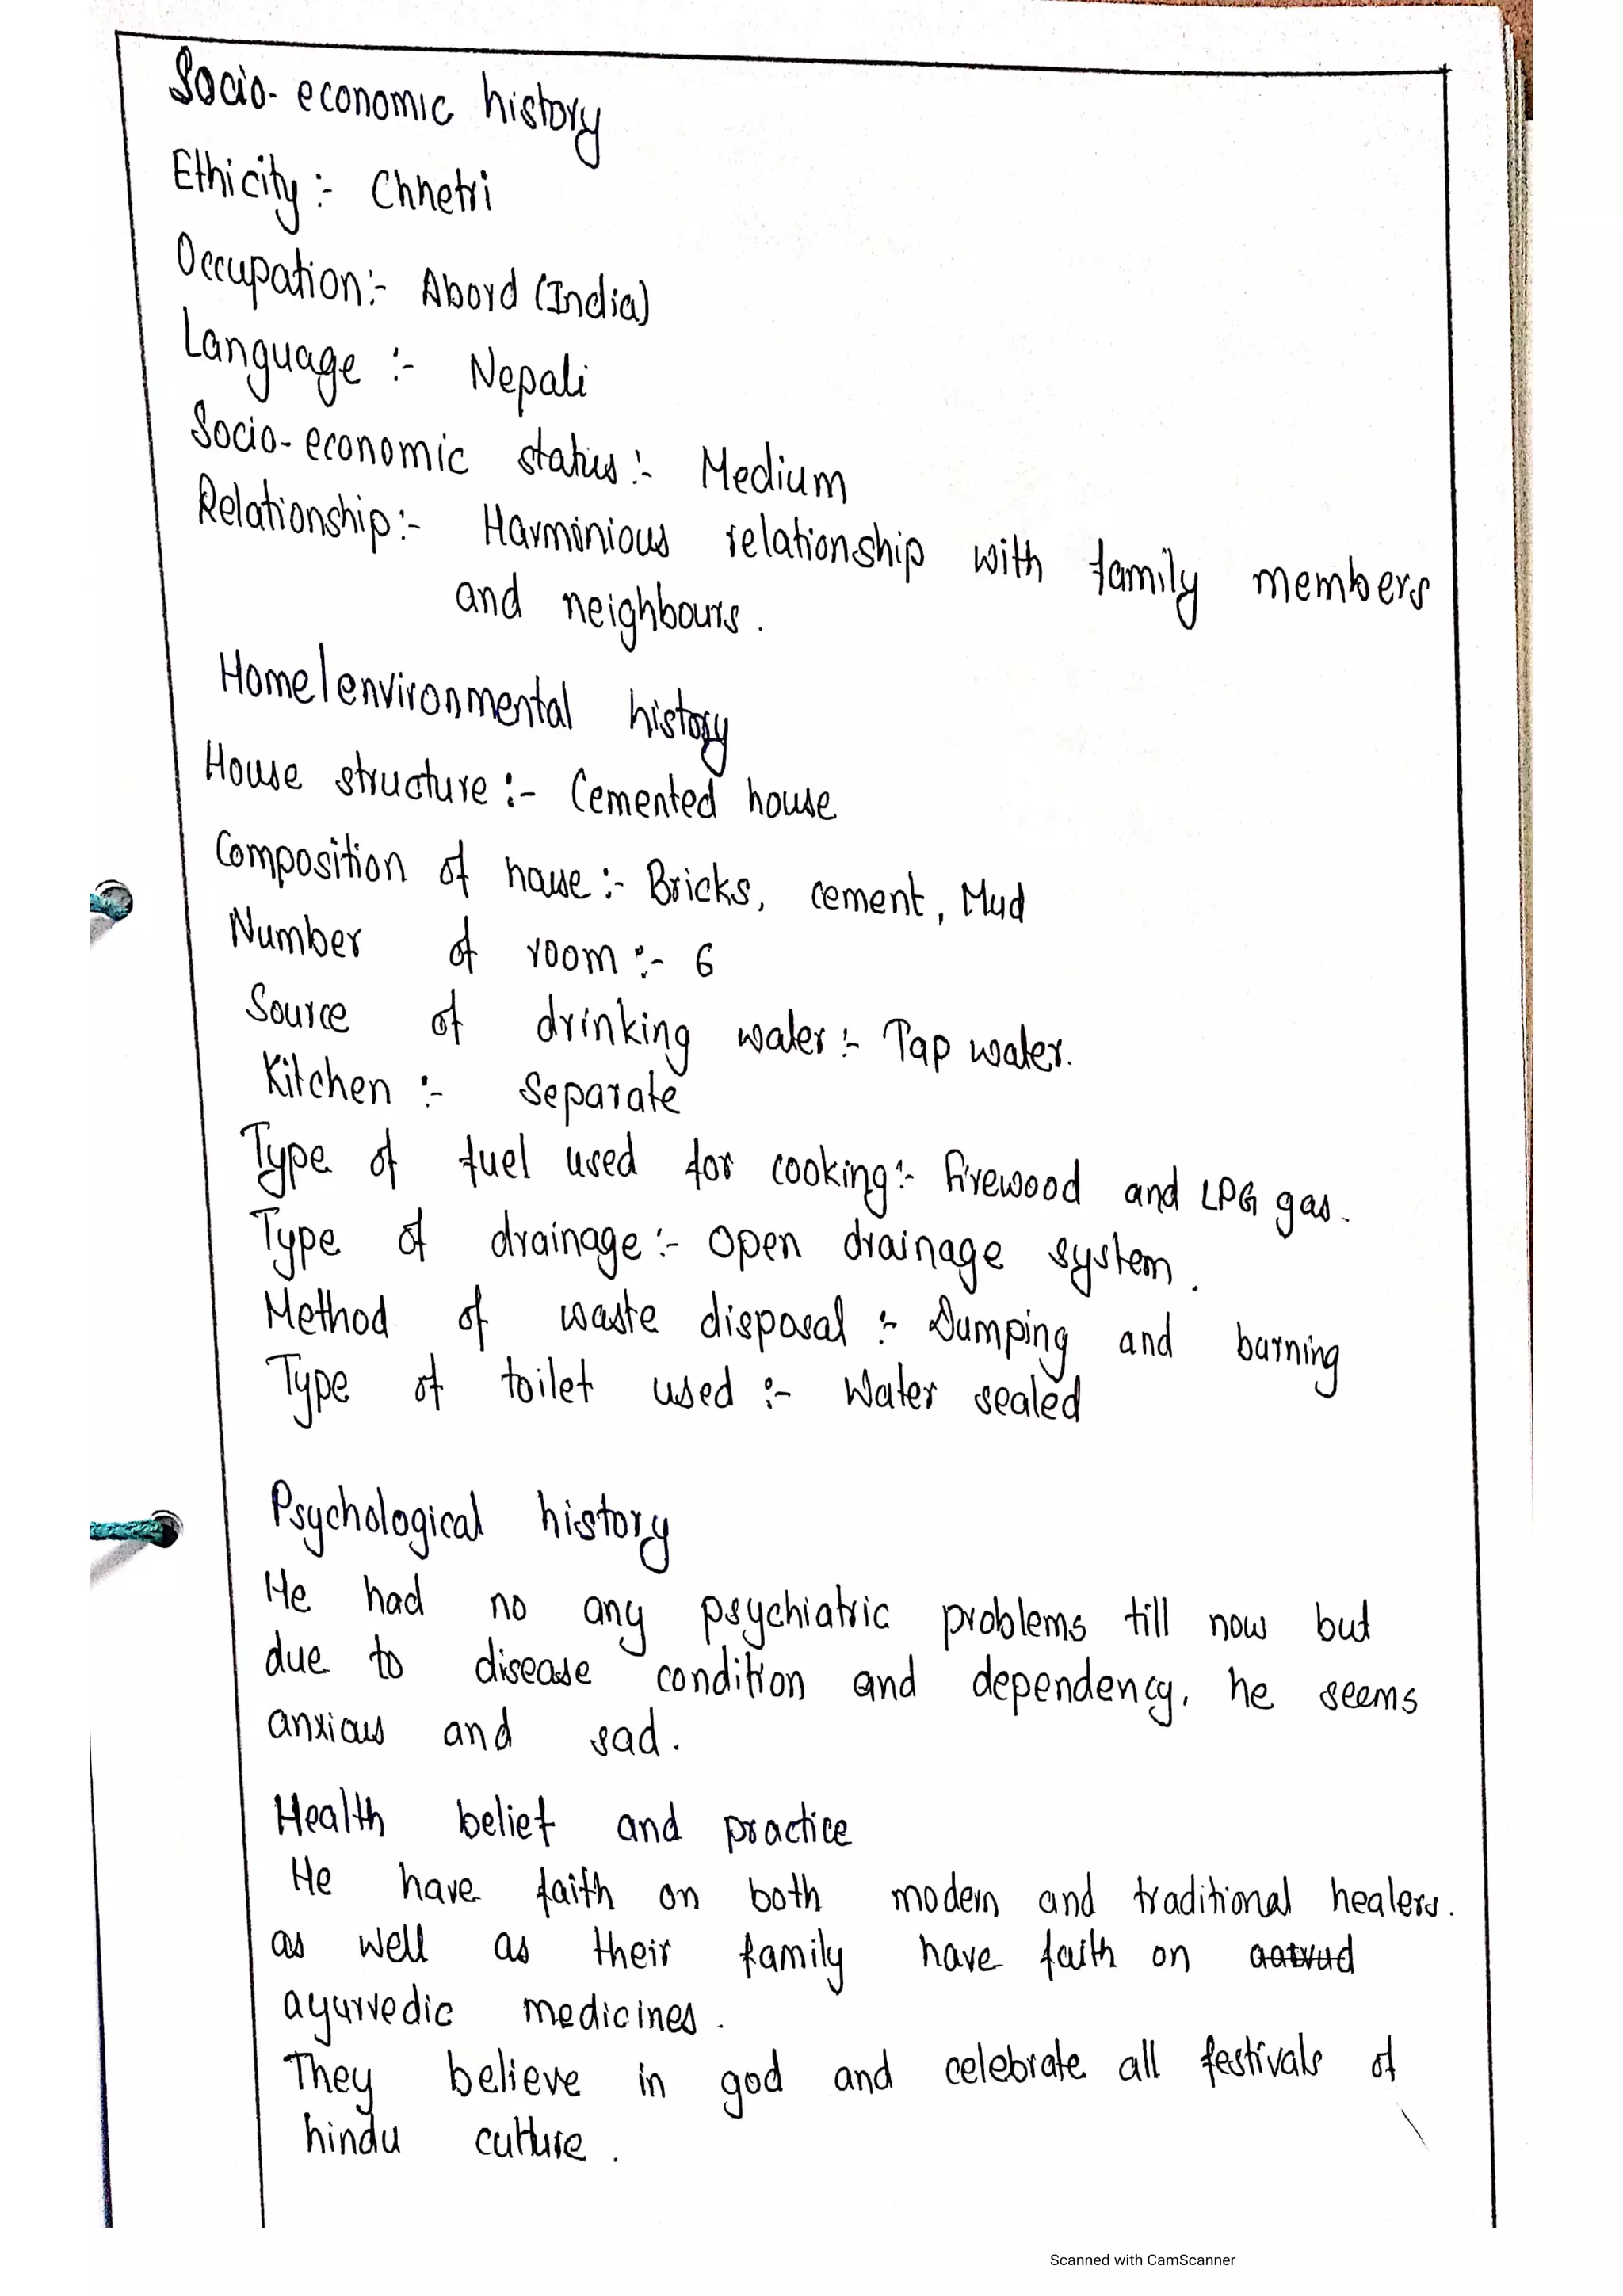 Socio-economic history
Ethicity :- Chhetri
Occupation:- Abord (India)
Language :- Nepali
Socio-economic status :- Medium
Relationship:- Harminious relationship with family members
and neighbours.
Home/environmental history
House structure :- Cemented house
Composition of house :- Bricks, cement, Mud
Number of room :- 6
Source of drinking water :- Tap water.
Kitchen :- Separate
Type of fuel used for cooking:- firewood and LPG gas.
Type of drainage :- Open drainage system.
Method of waste disposal :- Dumping and burning
Type of toilet used :- Water sealed
Psychological history
He had no any psychiatric problems till now but
due to disease condition and dependency, he seems
anxious and sad.
Health belief and practice
He have faith on both modern and traditional healers.
as well as their family have faith on
ayurvedic medicines.
They believe in god and celebrate all festivals of
hindu culture.
Scanned with CamScanner